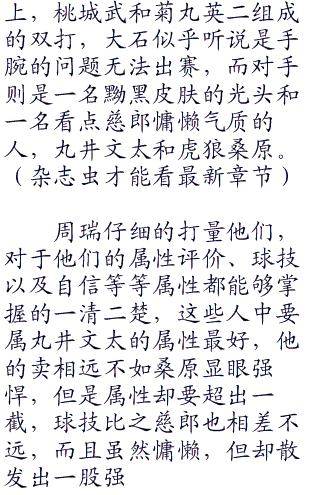 上，桃城武和菊丸英二组成
的双打，大石似乎听说是手
腕的问题无法出赛，而对手
则是一名黝黑皮肤的光头和
一名看点慈郎慵懒气质的
人，丸井文太和虎狼桑原。
（杂志虫才能看最新章节）
周瑞仔细的打量他们，
对于他们的属性评价、球技
以及自信等等属性都能够掌
握的一清二楚，这些人中要
属丸井文太的属性最好，他
的卖相远不如桑原显眼强
悍，但是属性却要超出一
截，球技比之慈郎也相差不
远，而且虽然慵懒，但却散
发出一股强